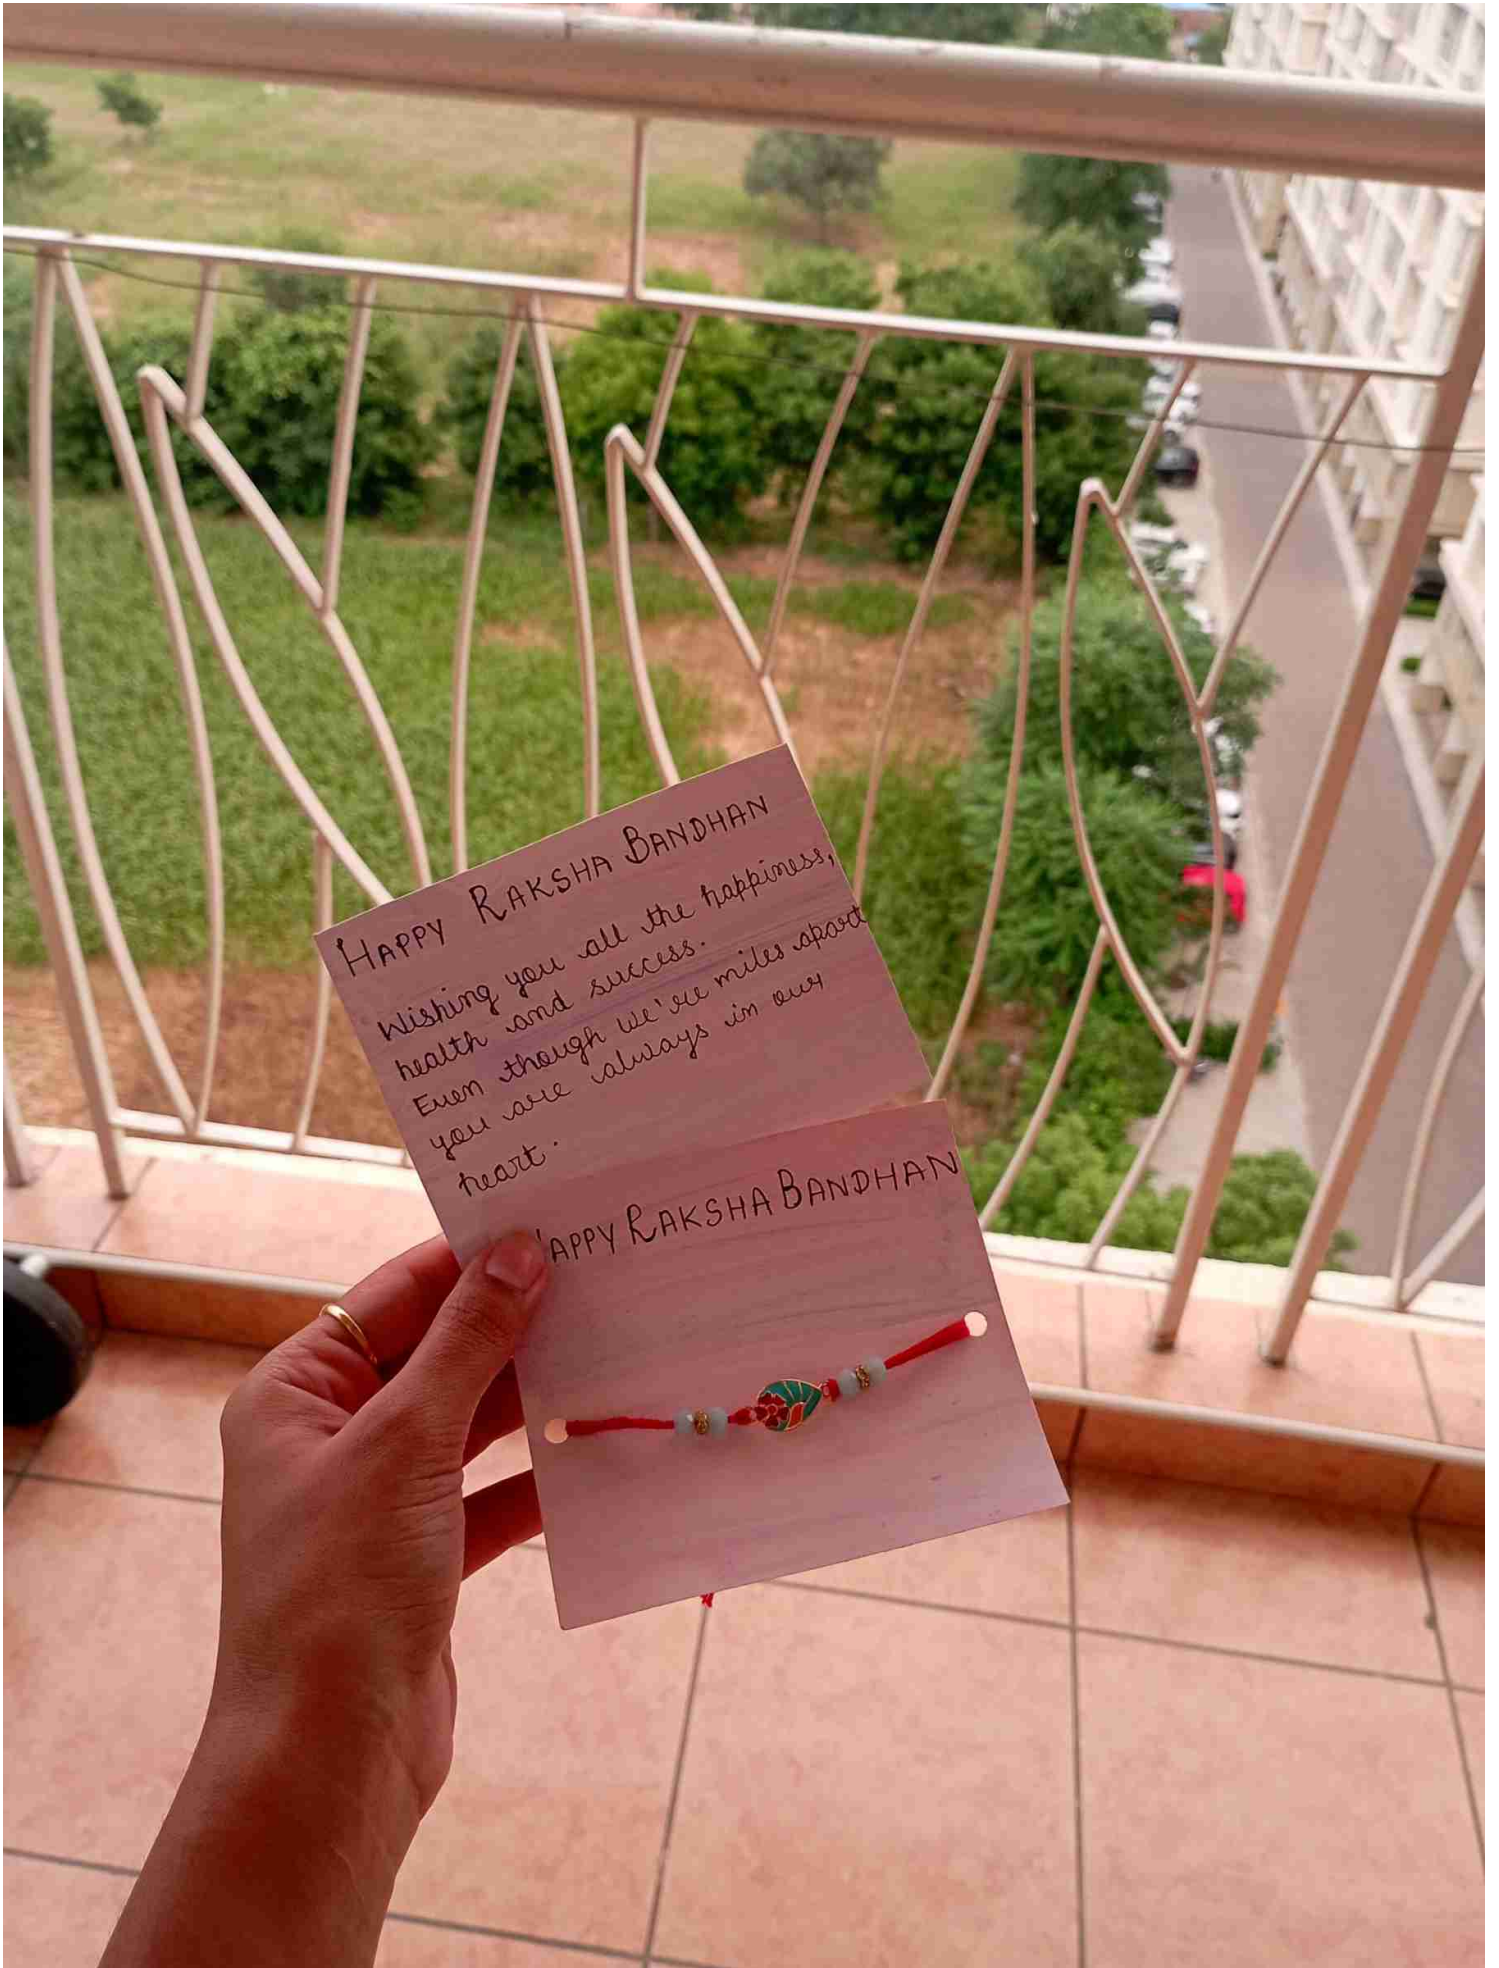 HAPPY RAKSHA BANDHAN
Wishing you all the happiness,
health and success.
Even though we're miles apart
you are always in our
heart.
HAPPY RAKSHA BANDHAN